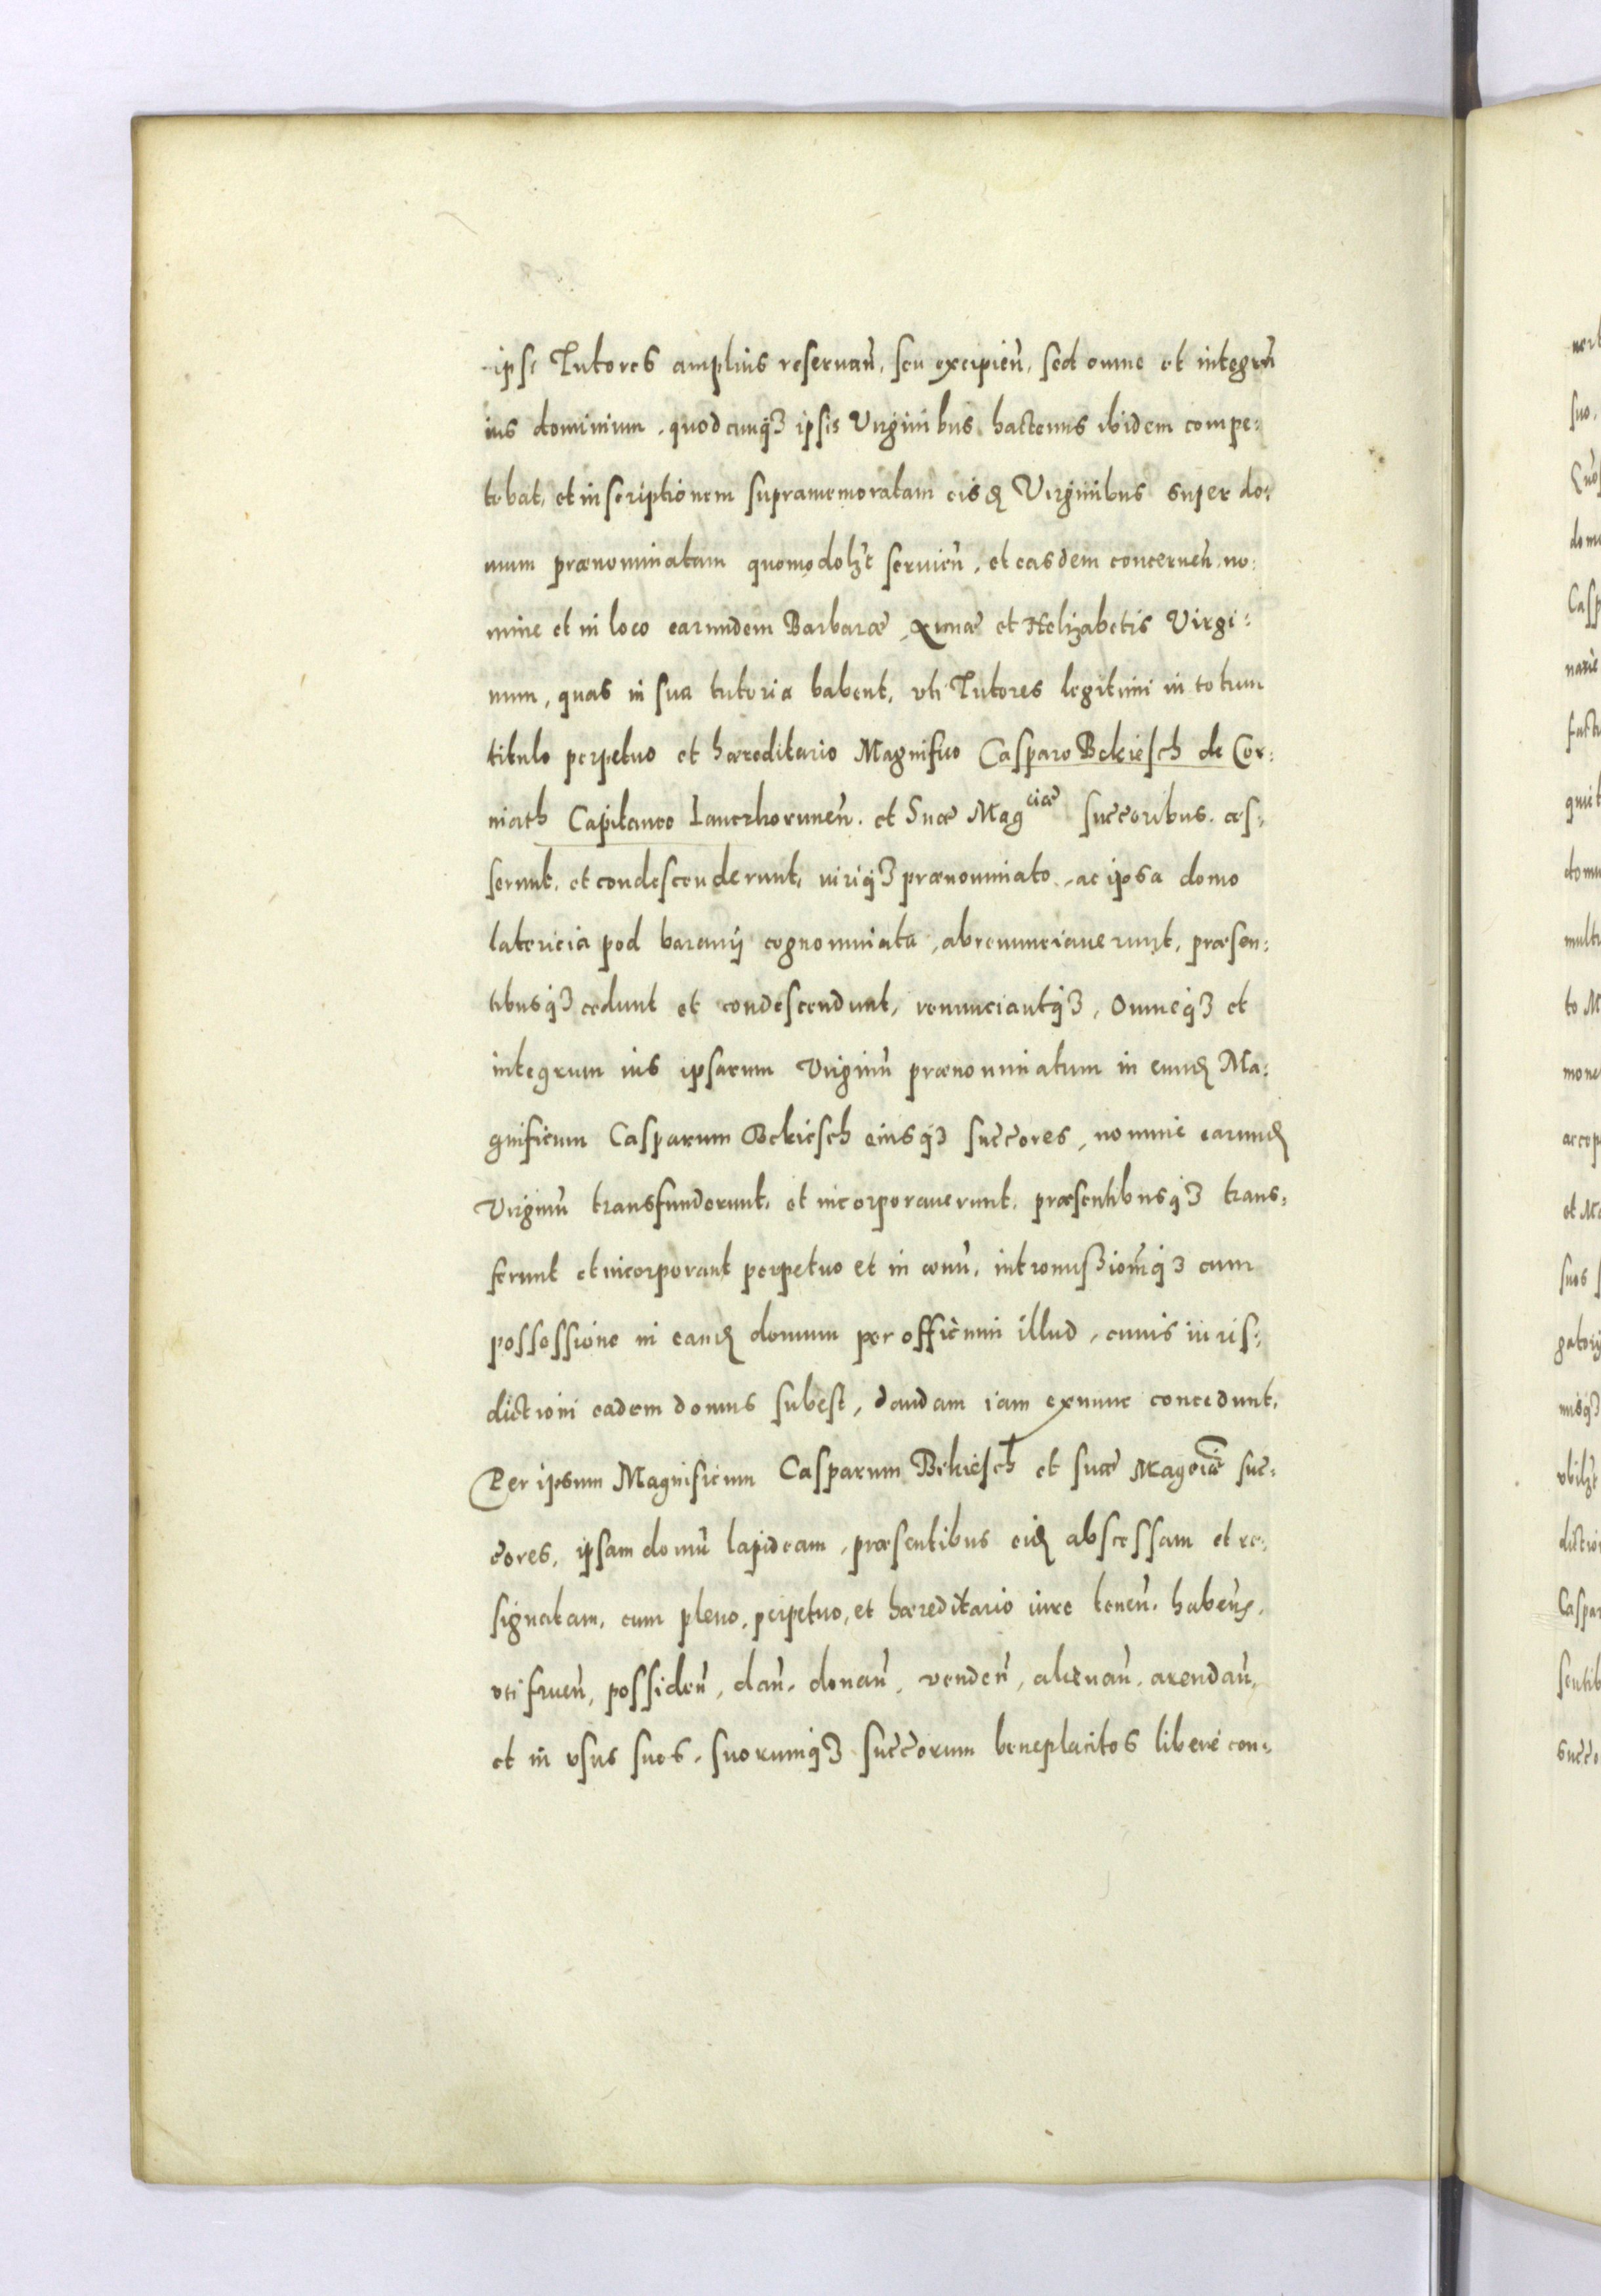 ipsi Tutores amplius reseruan̄, seu excipien̄, sed omne et integrū
ius dominium, quodcunqȝ ipsis Virginibus hactenus ibidem compe:
tebat, et inscriptionem supramemoratam eisd Virginibus super do:
mum prænominatam quomodolȝt seruien̄, et easdem concernen̄, no:
mine et in loco earundem Barbaræ, Annæ et Helizabetis Virgi:
num, quas in sua tutoria habent, vti Tutores legitimi in totum
titulo perpetuo et hæreditario Magnifico Casparo Bekiesch de Cor:
niath Capitaneo Lanczkorunen̄. et Suæ Mag^ciæ succ̄oribus. ces:
serunt. et condescenderunt, iuriqȝ prænominato, ac ipsa domo
latericia pod baranij cognominata, abrenunciauerunt, præsen:
tibusqȝ cedunt et condescendunt, renunciantqȝ, Omneqȝ et
integrum ius ipsarum Virginū prænominatum in eund Ma:
gnificum Casparum Bekiesch eiusqȝ succ̄ores, nomine earund
Virginū transfunderunt, et incorporauerunt, præsentibusqȝ trans:
ferunt et incorporant perpetuo et in æuū, intromißion̄qȝ cum
possessione in eand domum per officium illud, cuius iuris:
dictioni eadem domus subest, dandam iam exnunc concedunt.
Per ipsum Magnificum Casparum Bekiesch et suæ Mag̅ciæ suc̄:
c̄ores, ipsam domū lapideam, præsentibus eid abscessam et re:
signatam, cum pleno, perpetuo, et hæreditario iure tenen̄. haben̄,
vti fruen̄, possiden̄, dan̄, donan̄, venden̄, alienan̄, arendan̄,
et in vsus suos, suorumqȝ succ̄orum beneplacitos liberè con: